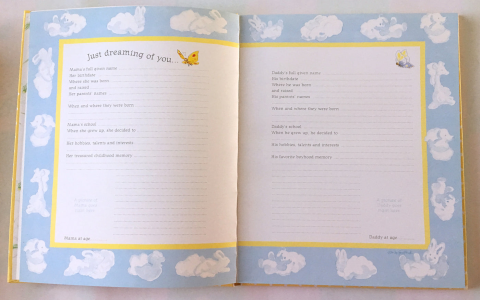 Just dreaming of you...
Mama's full given name
Her birthdate
Where she was born
and raised
Her parents' names
When and where they were born
Mama's school
When she grew up, she decided to
Her hobbies, talents and interests
Her treasured childhood memory
Mama at age
Daddy's full given name
His birthdate
Where he was born
and raised
His parents' names
When and where they were born
Daddy's school
When he grew up, he decided to
His hobbies, talents and interests
His favorite boyhood memory
Daddy at age